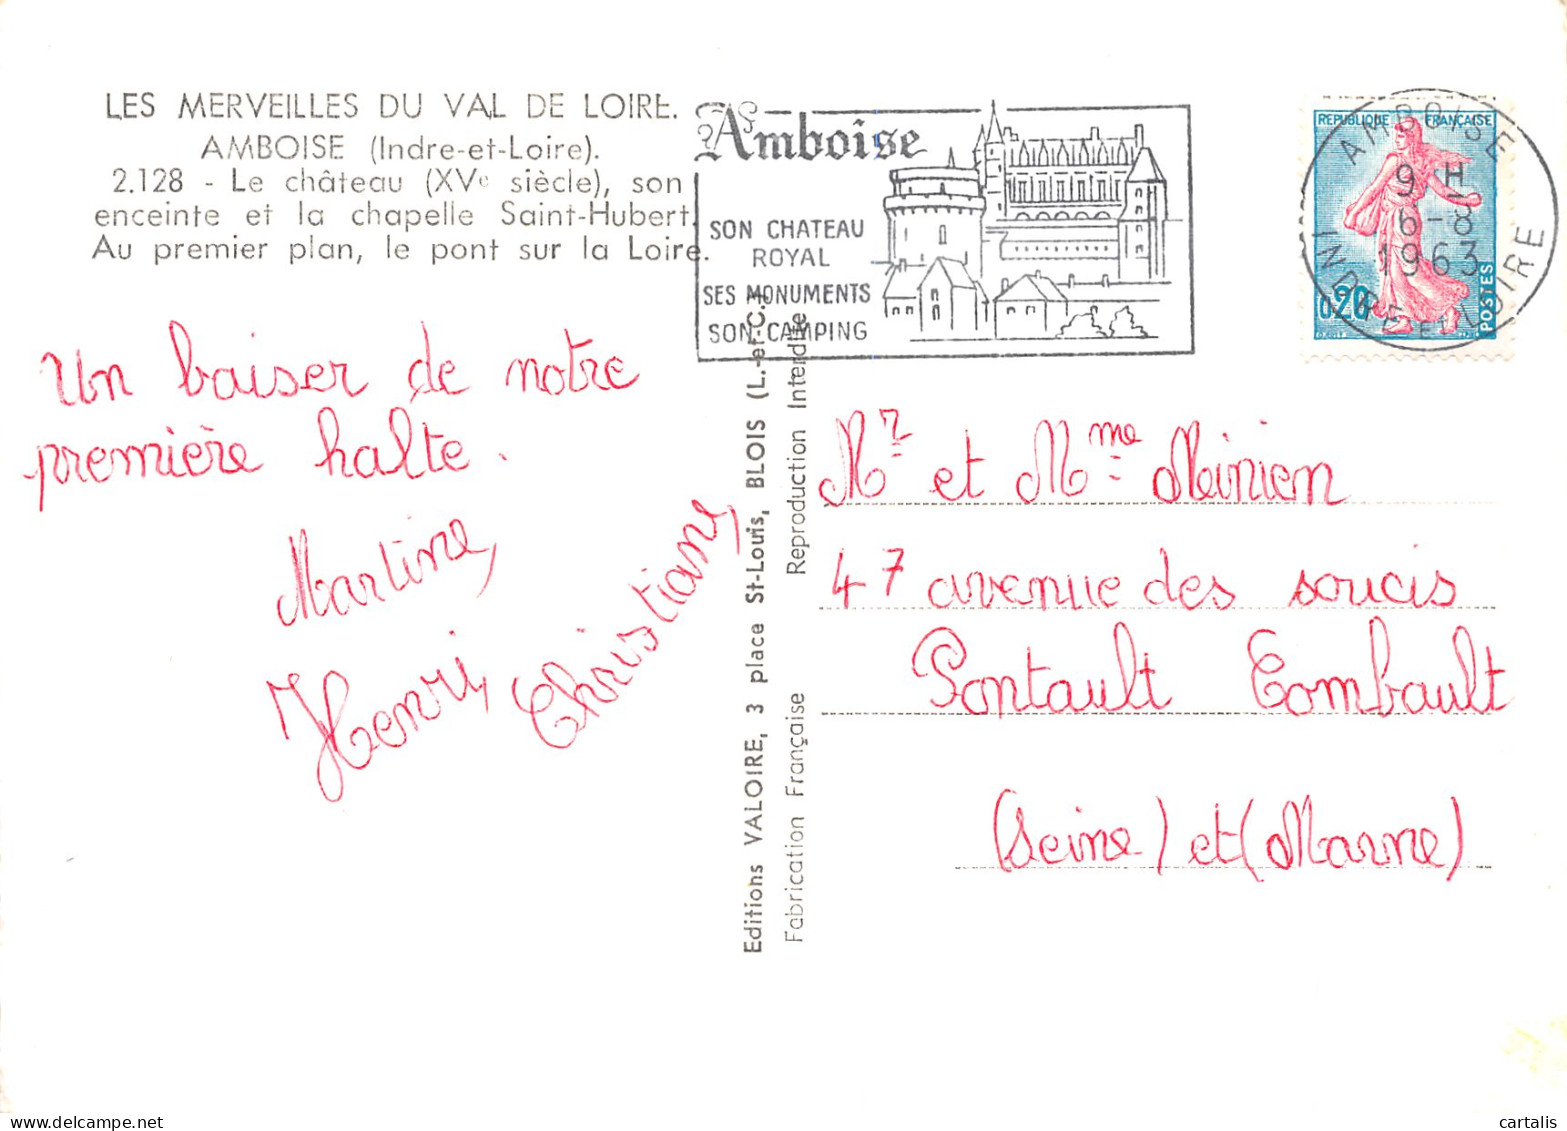 LES MERVEILLES DU VAL DE LOIRE.
AMBOISE (Indre-et-Loire).
2.128 - Le château (XVe siècle), son
enceinte et la chapelle Saint-Hubert.
Au premier plan, le pont sur la Loire.
Amboise
SON CHATEAU
ROYAL
SES MONUMENTS
SON CAMPING
REPUBLIQUE FRANÇAISE
0,20
POSTES
AMBOISE
9 H
6-8
1963
INDRE ET LOIRE
Un baiser de notre
première halte.
Martine,
Henri,
Christiane,
Editions VALOIRE, 3 place St-Louis, BLOIS (L.-et-C.)
Fabrication Française Reproduction Interdite
Mr et Mme Meinien
47 avenue des soucis
Pontault Combault
(Seine) et (Marne)
cartalis